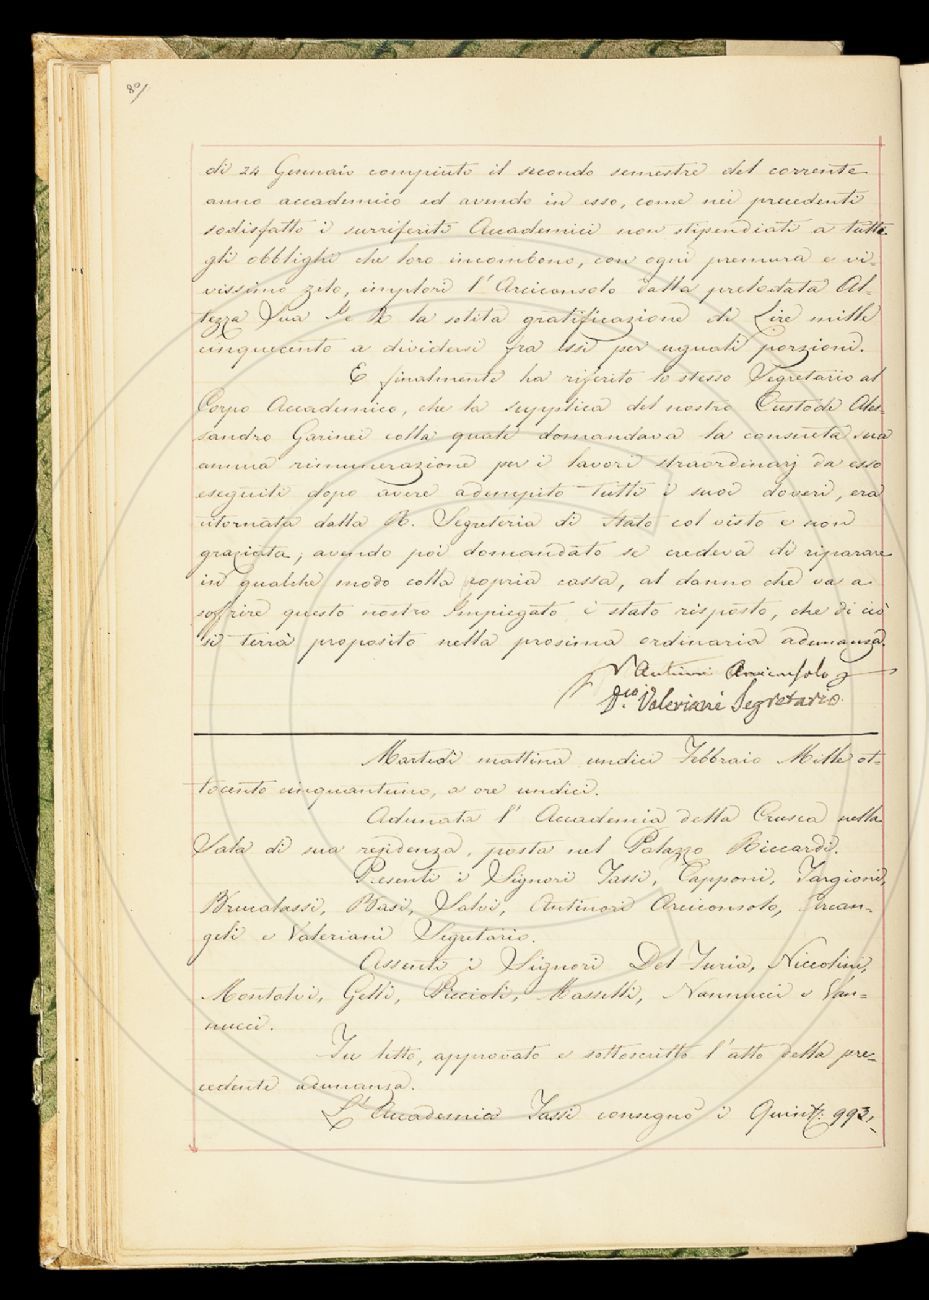 80/
di 24 Gennaio compiuto il secondo semestre del corrente
anno accademico ed avendo in esso, come nei precedenti
sodisfatto i surriferiti Accademici non stipendiati a tutti
gli obblighi che loro incombono, con ogni premura e vi-
vissimo zelo, implori l'Arciconsolo dalla prelodata Al-
tezza Sua I. e R. la solita gratificazione di Lire mille
cinquecento a dividersi fra essi per uguali porzioni.
E finalmente ha riferito lo stesso Segretario al
Corpo Accademico, che la supplica del nostro Custode Ales-
sandro Garinei colla quale domandava la consueta sua
annua rimunerazione per i lavori straordinarj da esso
eseguiti dopo avere adempito tutti i suoi doveri, era
ritornata dalla R. Segreteria di Stato col visto e non
graziata; avendo poi domandato se credeva di riparare
in qualche modo colla propria cassa, al danno che va a
soffrire questo nostro Impiegato è stato risposto, che di ciò
si terrà proposito nella prossima ordinaria adunanza.
V Antinori Arciconsolo
D.co Valeriani Segretario
Martedì mattina undici Febbraio Mille ot-
tocento cinquantuno, a ore undici.
Adunata l'Accademia della Crusca nella
Sala di sua residenza, posta nel Palazzo Riccardi.
Presenti i Signori Tassi, Capponi, Targioni,
Brucalassi, Busi, Salvi, Antinori Arciconsolo, Arcan-
geli e Valeriani Segretario.
Assenti i Signori Del Furia, Niccolini,
Montalvi, Gelli, Piccioli, Masselli, Nannucci e Van-
nucci.
Fu letto, approvato e sottoscritto l'atto della pre-
cedente adunanza.
L'Accademico Tassi consegnò i Quint: 993,